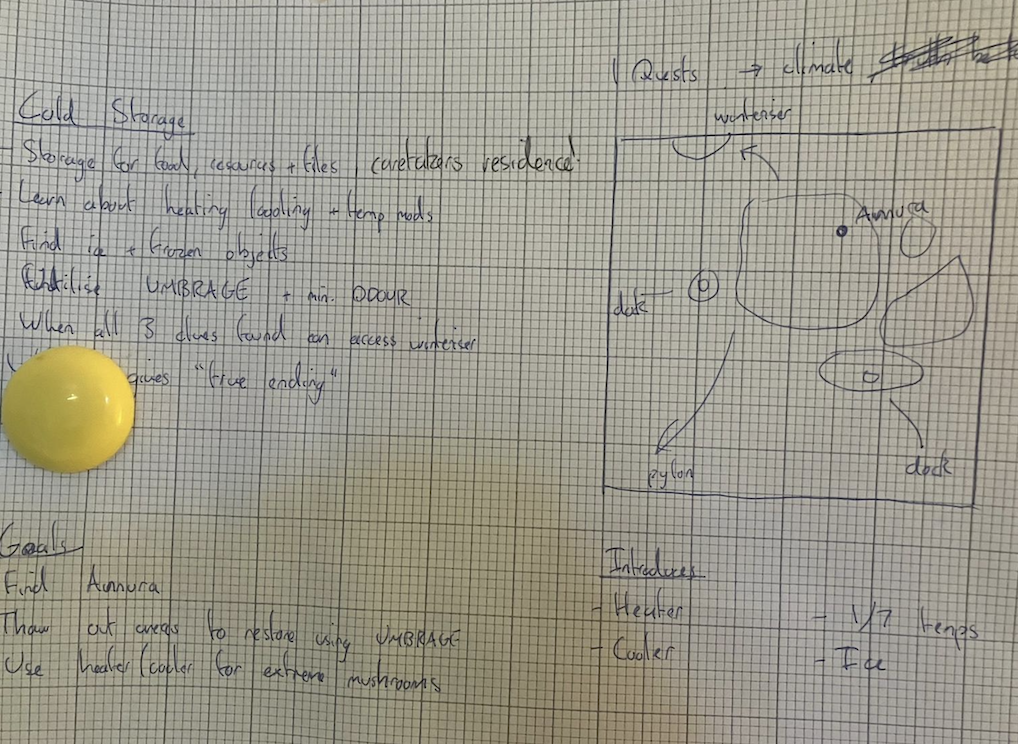 Cold Storage
- Storage for food, resources + files, caretakers residence
- Learn about heating/cooling + temp mods
Find ice + frozen objects
Utilise UMBRAGE + min. ODOUR
When all 3 clues found can access winteriser
gives "true ending"
Goals
Find Annura
Thaw out areas to restore using UMBRAGE
Use heater/cooler for extreme mushrooms
Quests → climate
winteriser
Annura
dock
pylon
dock
Introduces
- Heater
- Cooler
- 1/7 temps
- Ice